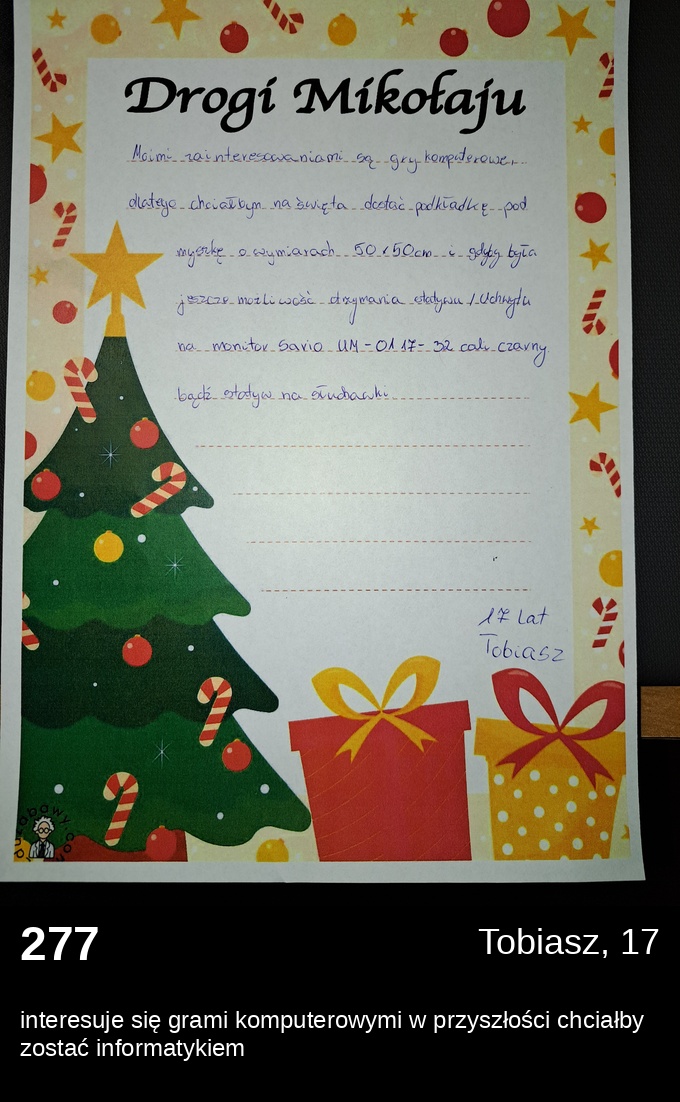 Drogi Mikołaju
Moimi zainteresowaniami są gry komputerowe,
dlatego chciałbym na święta dostać podkładkę pod
myszkę o wymiarach 50x50cm i gdyby była
jeszcze możliwość otrzymania statywu / Uchwytu
na monitor Savio UM-01 17-32 cali czarny
bądź statyw na słuchawki
17 Lat
Tobiasz
277
Tobiasz, 17
interesuje się grami komputerowymi w przyszłości chciałby
zostać informatykiem